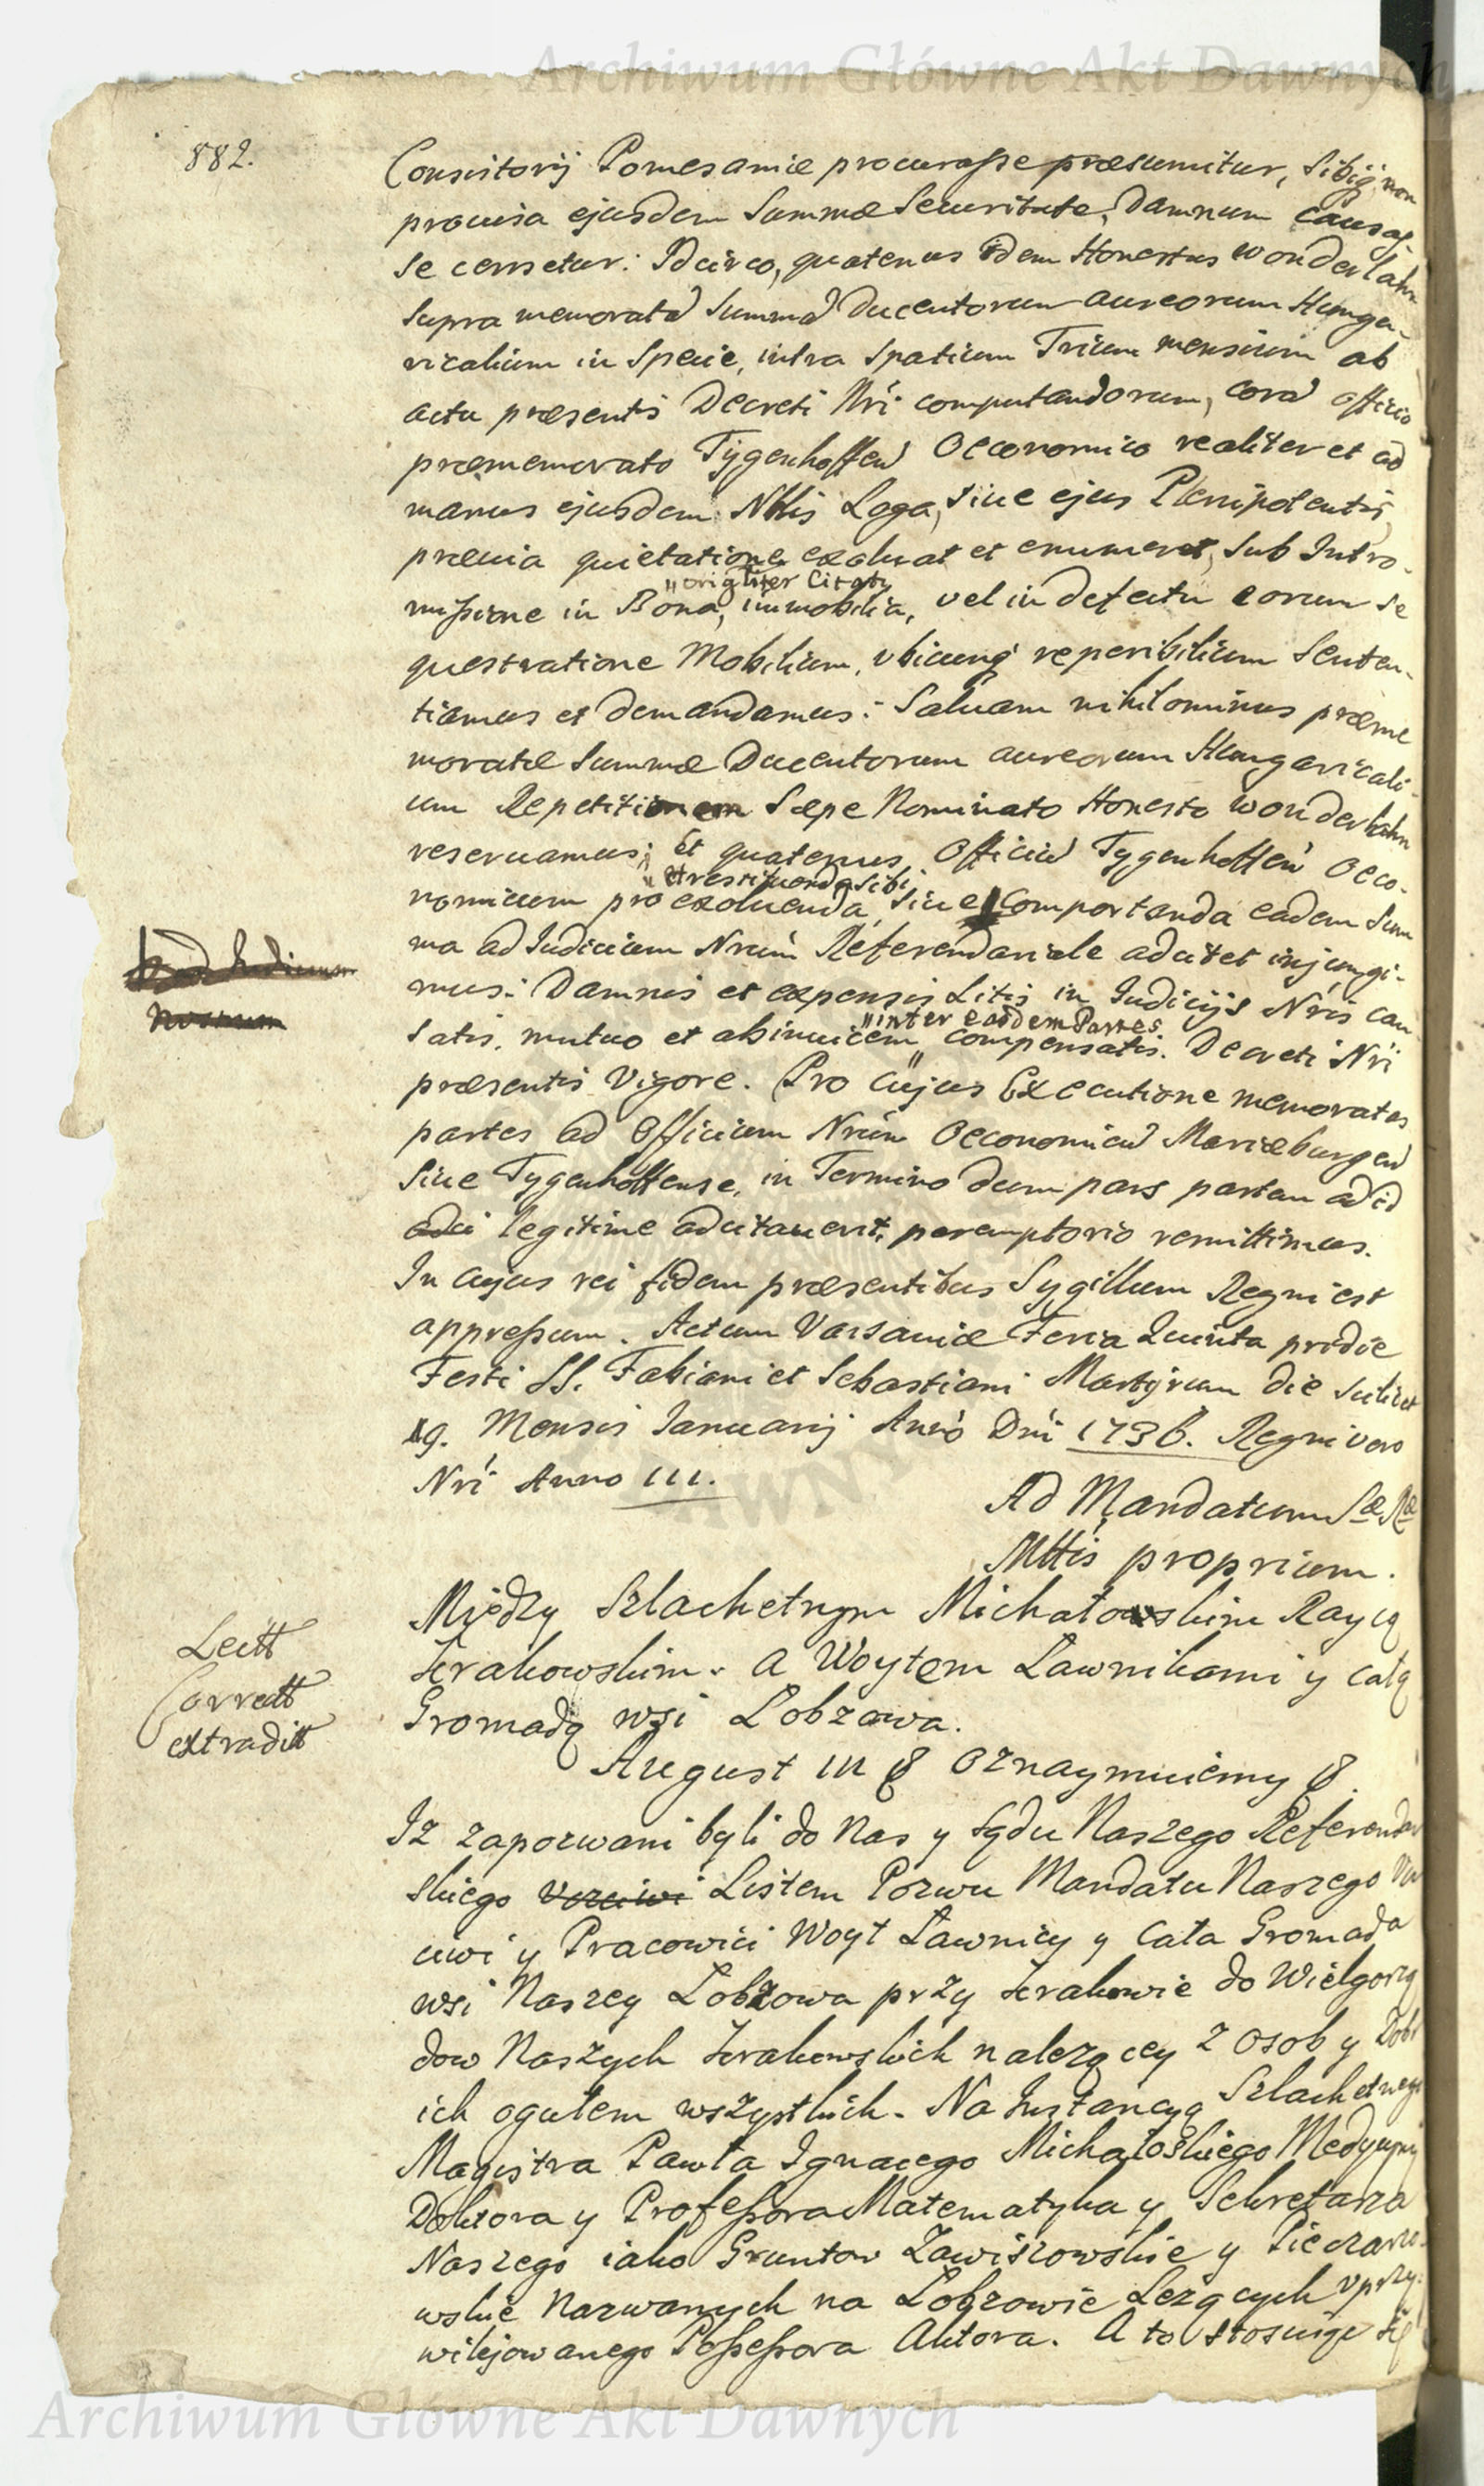 Archiwum Główne Akt Dawnych
882.
Consistorij Pomesaniæ procurasse præsumitur, Sibiq non
provisa ejusdem Summæ Securitate, Damnum causas-
se censetur: Idcirco, quatenus idem Honestus Wonderlahn
supra memoratā Summā Ducentorum aureorum Hunga-
ricalium in Specie, intra Spatium Trium mensium ab
actu præsentis Decreti Nri computandorum, corā officio
præmemorato Tygenhoffen Oeconomico realiter et ad
manus ejusdem Nblis Loga, sive ejus Plenipotentis,
prævia quietatione exolvat et enumeret, sub Intro-
"origliter Citaty
missione in Bona, immobilia, vel in defectu eorum se
questratione Mobilium, ubicunq reperibilium Senten-
tiamus et demandamus: Salvam nihilominus præme
moratæ Summæ Ducentorum aureorum Hungaricali-
um Repetitionem Sæpe Nominato Honesto Wonderlahn
reservamus; Et quatenus Officiū Tygenhoffen Oeco-
"et restituenda sibi
nomicum pro exolvenda, sive comportanda eadem Sum
ma ad Iudicium Nrum Referendariale adcitet injungi-
mus: Damnis et expensis Litis in Iudicijs Nris cau
"inter easdem Partes
satis, mutuo et abinvicem" compensatis. Decreti Nri
præsentis Vigore. Pro cujus Executione memoratas
partes ad Officium Nrum Oeconomicū Mariæburgen
sive Tygenhoffense, in Termino dum pars partem ad id
adci legitime adcitaverit, peremptorio remittimus.
In cujus rei fidem præsentibus Sygillum Regni est
appressum. Actum Varsaviæ Feria Quinta pridie
Festi SS. Fabiani et Sebastiani Martyrum die scilicet
19. Mensis Ianuarij Anno Dni 1736. Regni vero
Nri Anno III.
Ad Mandatum Sæ Ræ
Mttis proprium.
Ad Iudicium
Nostrum
Między Szlachetnym Michałowskim Raycą
Krakowskim. a Woytem Ławnikami y całą
Gromadą wsi Łobzowa.
Lectt
Correctt
extraditt
August III & Oznaymuiemy &.
Iz zapozwani byli do Nas y Sądu Naszego Referendar
skiego Uczciwi Listem Pozwu Mandatu Naszego Ucz
ciwi y Pracowici Woyt Ławnicy y Cała Gromada
wsi Naszey Łobzowa przy Krakowie do Wielgorzą
dow Naszych Krakowskich nalezącey z Osob y Dobr
ich ogułem wszystkich. Na Instancyą Szlachetnego
Magistra Pawła Ignacego Michałoskiego Medycyny
Doktora y Professora Matematyka y Sekretarza
Naszego iako Gruntow Zawiszowskie y Pieczaro-
wskie Nazwanych na Łobzowie Lezących uprzy-
wilejowanego Possessora Aktora. A to stosuiąc się
Archiwum Główne Akt Dawnych